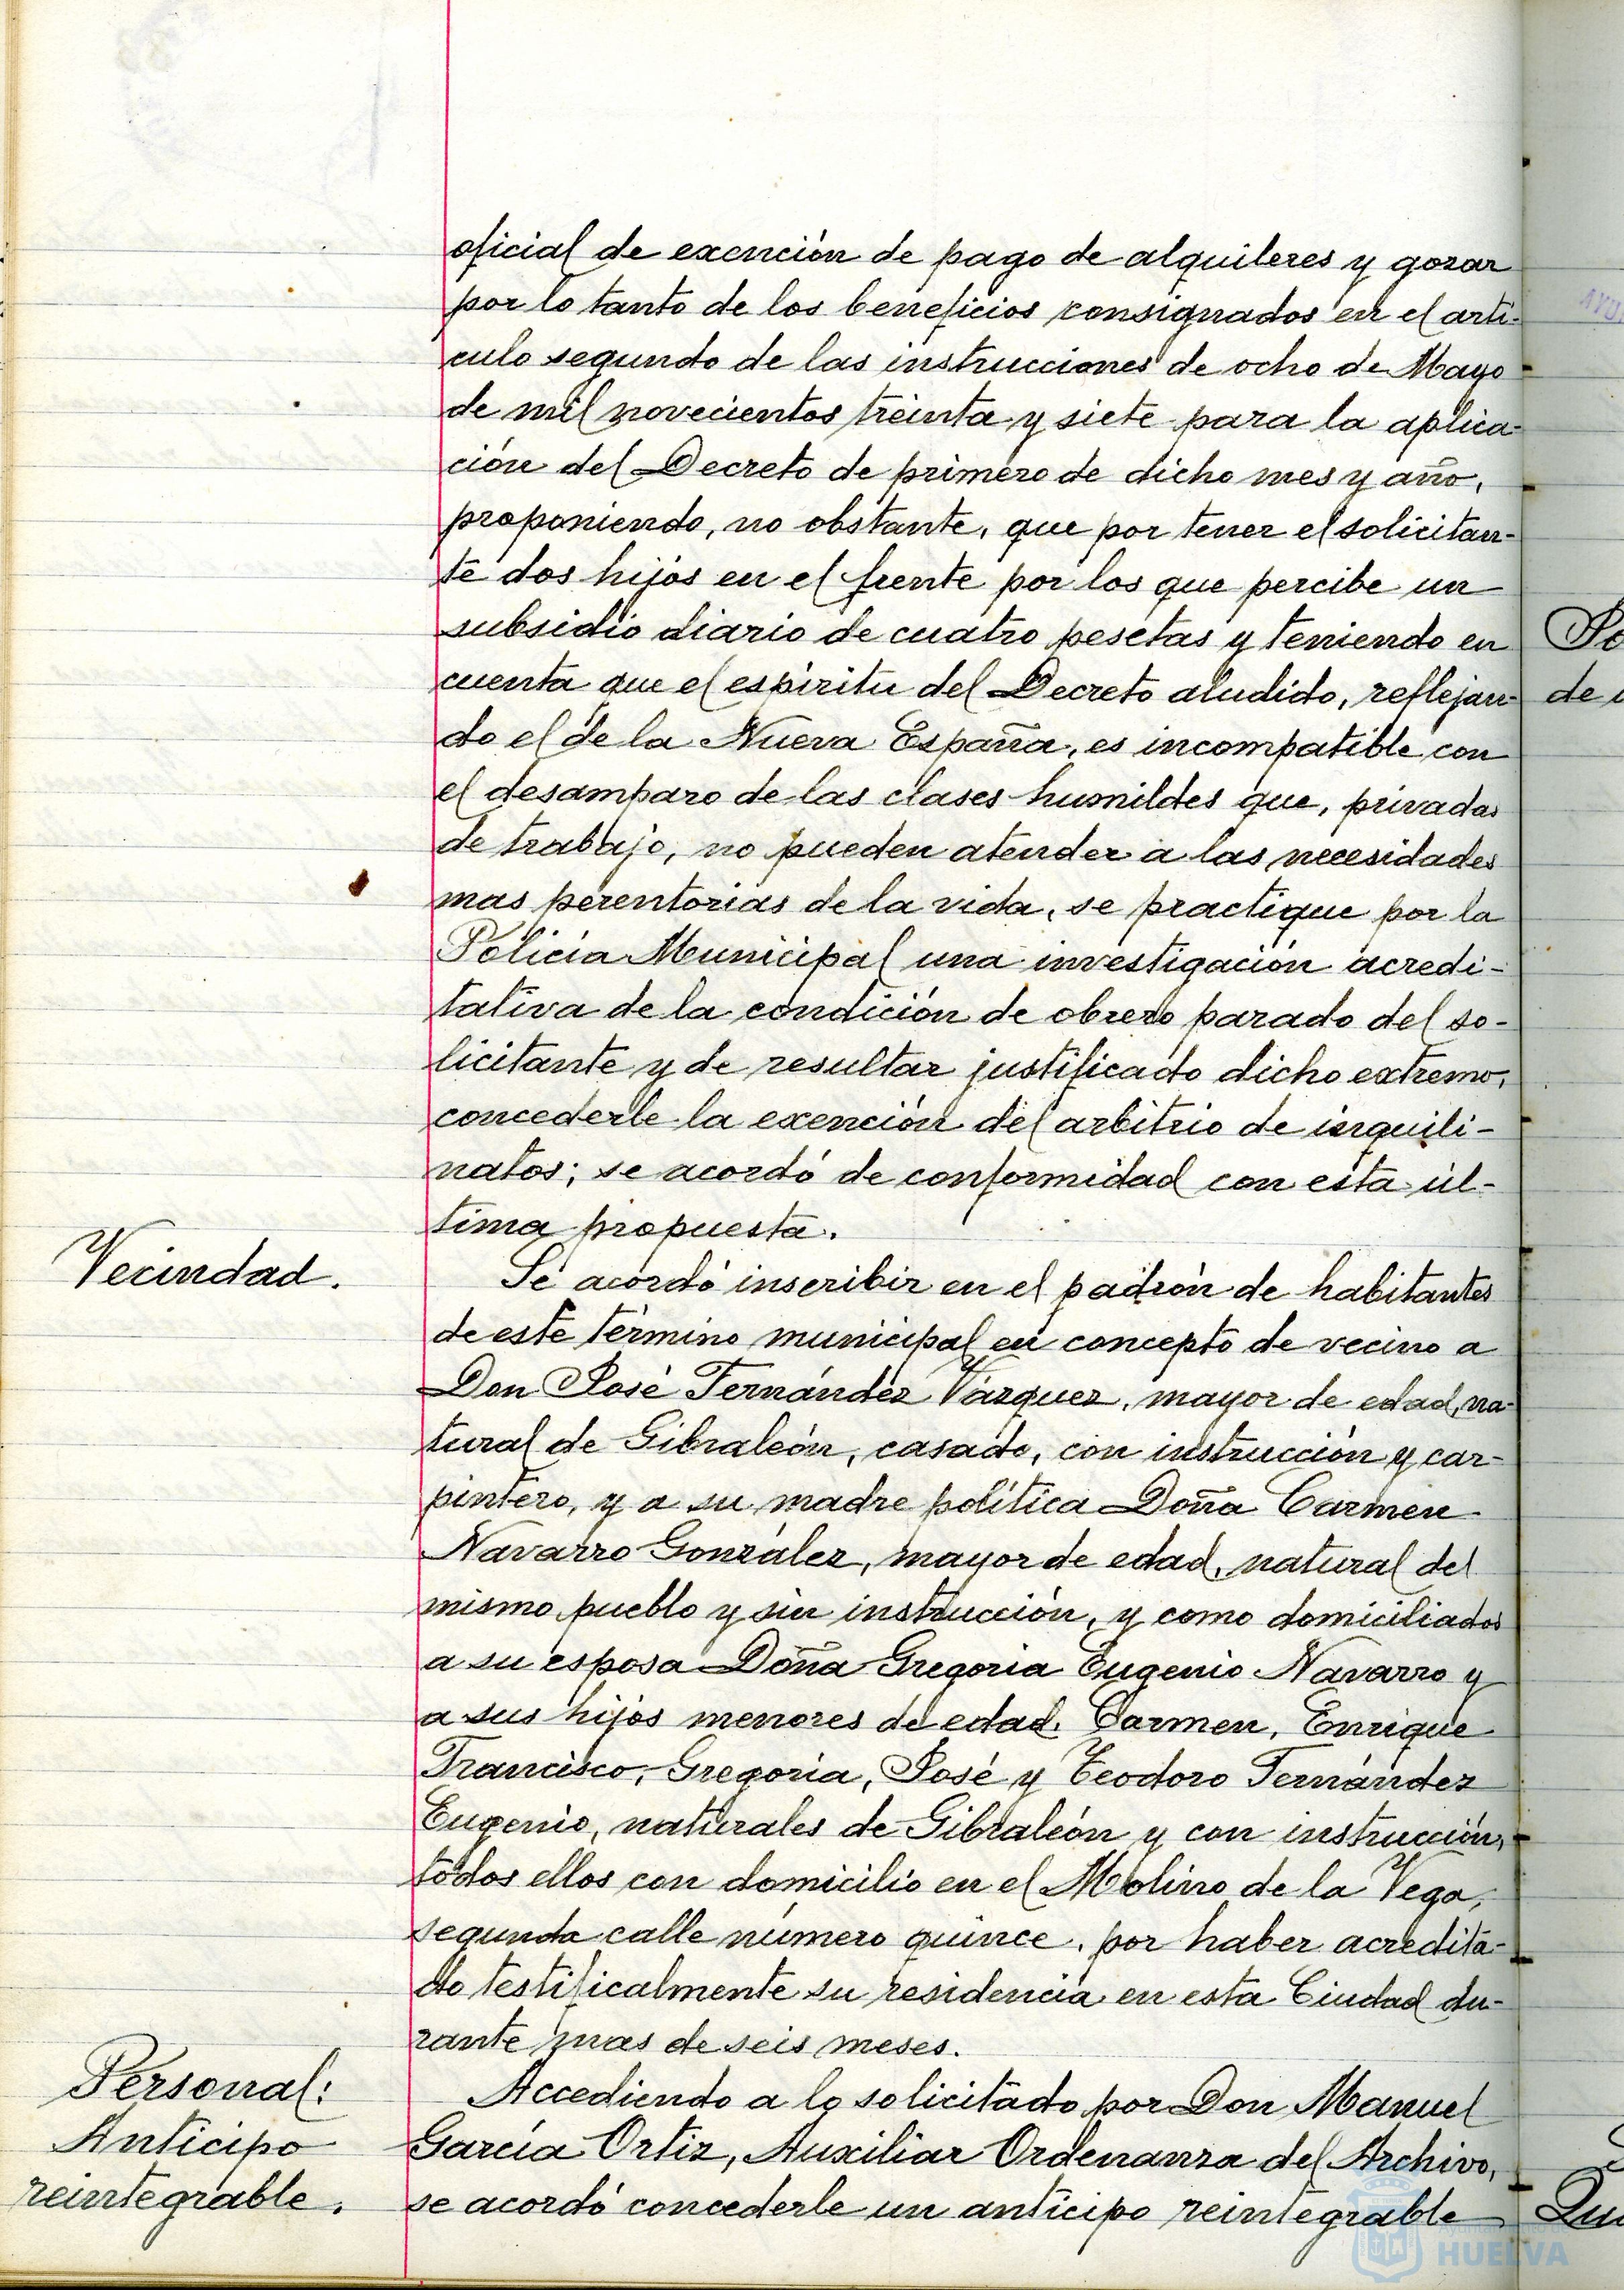 oficial de exención de pago de alquileres y gozar
por lo tanto de los beneficios consignados en el artí-
culo segundo de las instrucciones de ocho de Mayo
de mil novecientos treinta y siete para la aplica-
ción del Decreto de primero de dicho mes y año,
proponiendo, no obstante, que por tener el solicitan-
te dos hijos en el frente por los que percibe un
subsidio diario de cuatro pesetas y teniendo en
cuenta que el espíritu del Decreto aludido, reflejan-
do el de la Nueva España, es incompatible con
el desamparo de las clases humildes que, privadas
de trabajo, no pueden atender a las necesidades
mas perentorias de la vida, se practique por la
Policía Municipal una investigación acredi-
tativa de la condición de obrero parado del so-
licitante y de resultar justificado dicho extremo,
concederle la exención del arbitrio de inquili-
natos; se acordó de conformidad con esta úl-
tima propuesta.
Vecindad.
Se acordó inscribir en el padrón de habitantes
de este término municipal en concepto de vecino a
Don José Fernández Vázquez, mayor de edad, na-
tural de Gibraleón, casado, con instrucción y car-
pintero, y a su madre política Doña Carmen
Navarro González, mayor de edad, natural del
mismo pueblo y sin instrucción, y como domiciliados
a su esposa Doña Gregoria Eugenio Navarro y
a sus hijos menores de edad. Carmen, Enrique
Francisco, Gregoria, José y Teodoro Fernández
Eugenio, naturales de Gibraleón y con instrucción,
todos ellos con domicilio en el Molino de la Vega,
segunda calle número quince, por haber acredita-
do testificalmente su residencia en esta Ciudad du-
rante mas de seis meses.
Personal:
Anticipo
reintegrable.
Accediendo a lo solicitado por Don Manuel
García Ortiz, Auxiliar Ordenanza del Archivo,
se acordó concederle un anticipo reintegrable
de
Qu
HUELVA